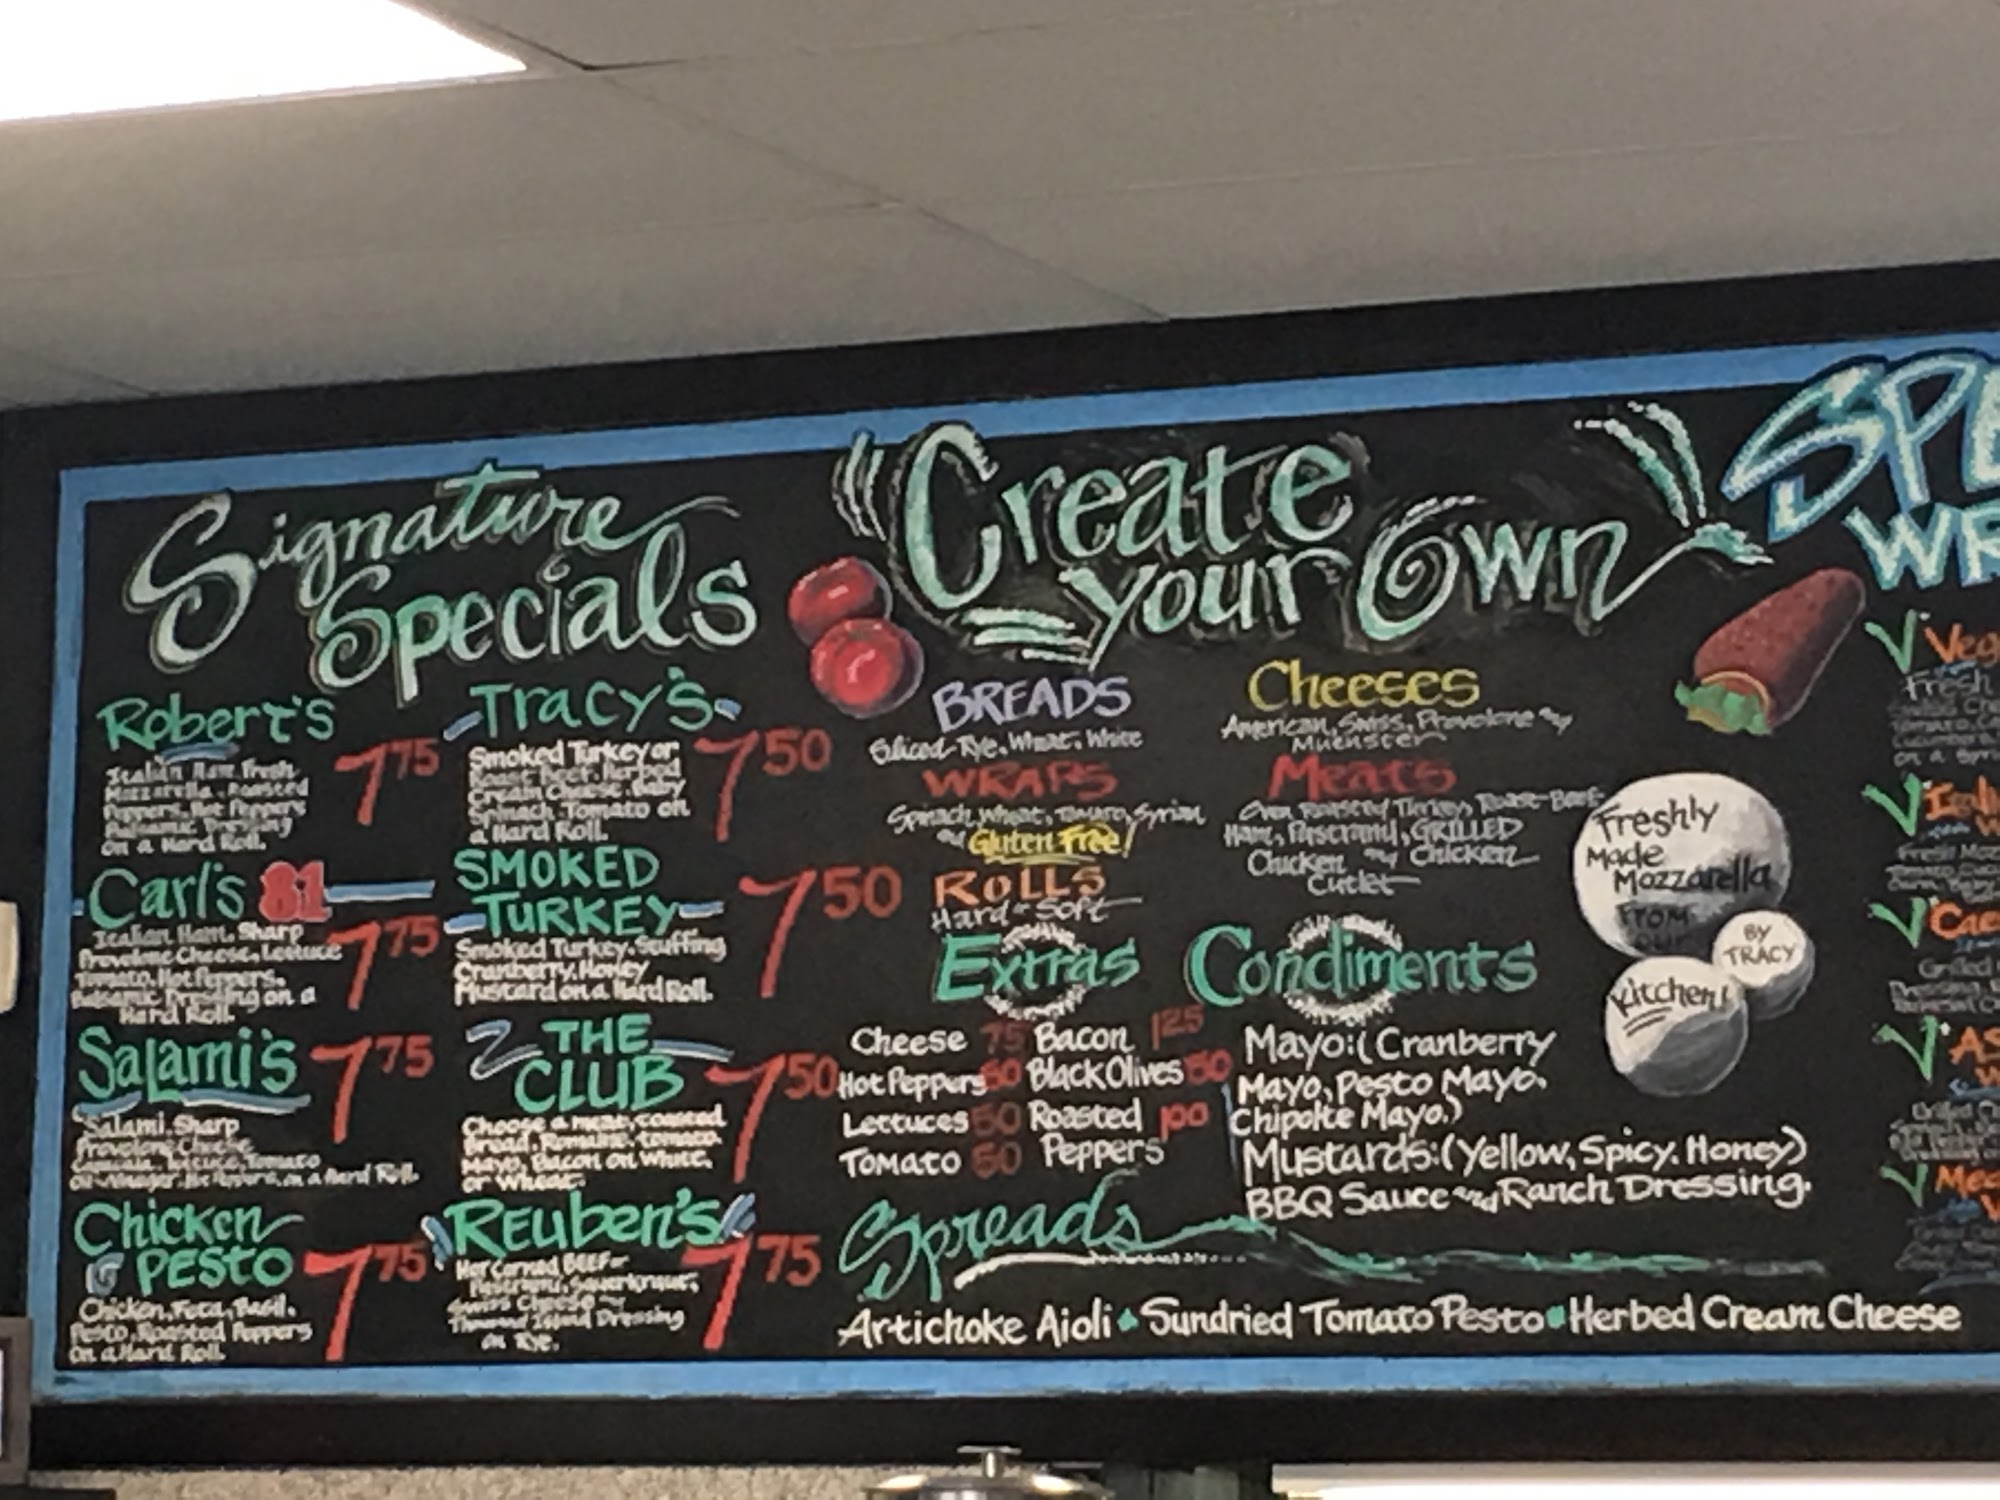 Signature
Specials
Robert's 7 75
Italian Ham, Fresh
Mozzarella, Roasted
Peppers, Hot Peppers
Balsamic Dressing
On a Hard Roll.
Carl's 81
Italian Ham, Sharp
Provolone Cheese, Lettuce 7 75
Tomato, Hot Peppers.
Balsamic Dressing on a
Hard Roll.
Salami's 7 75
Salami, Sharp
Provolone Cheese
Lettuce, Tomato
Hot Peppers, on a Hard Roll.
Chicken
PESTO 7 75
Chicken, Feta, Basil,
Pesto, Roasted Peppers
On a Hard Roll.
Tracy's
Smoked Turkey or 7 50
Roast Beef, Herbed
Cream Cheese, Baby
Spinach, Tomato on
a Hard Roll.
SMOKED
TURKEY 7 50
Smoked Turkey, Stuffing
Cranberry, Honey
Mustard on a Hard Roll.
THE
CLUB 7 50
Choose a meat, toasted
Bread, Romaine, tomato,
Mayo, Bacon on White,
or Wheat.
REuben's
Hot Corned BEEF or 7 75
Pastrami, Sauerkraut,
Swiss Cheese
Thousand Island Dressing
on Rye.
Create
your Own
BREADS
Sliced-Rye, Wheat, White
WRAPS
Spinach, Wheat, Tomato, Syrian
and Gluten Free!
ROLLS
Hard or Soft
Cheeses
American, Swiss, Provolone and
Muenster
Meats
Oven Roasted Turkey, Roast-Beef
Ham, Pastrami, GRILLED
Chicken and Chicken
Cutlet
Extras
Cheese 75 Bacon 1 25
Hot Peppers 50 Black Olives 50
Lettuces 50 Roasted 1 00
Tomato 50 Peppers
Condiments
Mayo: (Cranberry
Mayo, Pesto Mayo,
Chipolte Mayo.)
Mustards: (Yellow, Spicy, Honey)
BBQ Sauce and Ranch Dressing.
Spreads
Artichoke Aioli Sundried Tomato Pesto Herbed Cream Cheese
Freshly
Made
Mozzarella
FROM
OUR
Kitchen!
BY
TRACY
SPE
WR
Veg
Fresh
Cae
Grilled
AS
W
Mec